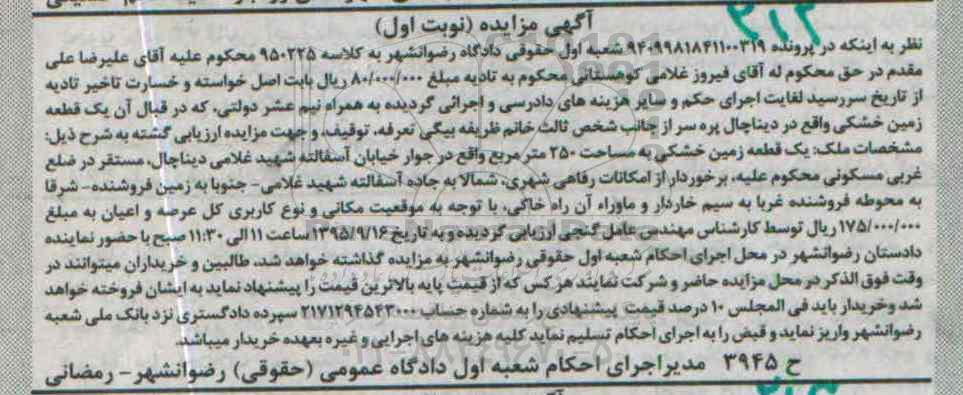 آگهی مزایده (نوبت اول)
نظر به اینکه در پرونده ۹۴۰۹۹۸۱۸۴۱۱۰۰۳۱۹ شعبه اول حقوقی دادگاه رضوانشهر به کلاسه ۹۵۰۲۲۵ محکوم علیه آقای علیرضا علی
مقدم در حق محکوم له آقای فیروز غلامی کوهستانی محکوم به تادیه مبلغ ۸۰/۰۰۰/۰۰۰ ریال بابت اصل خواسته و خسارت تاخیر تادیه
از تاریخ سررسید لغایت اجرای حکم و سایر هزینه های دادرسی و اجرائی گردیده به همراه نیم عشر دولتی، که در قبال آن یک قطعه
زمین خشکی واقع در دیناچال پره سر از جانب شخص ثالث خانم ظریفه بیگی تعرفه، توقیف، و جهت مزایده ارزیابی گشته به شرح ذیل:
مشخصات ملک: یک قطعه زمین خشکی به مساحت ۲۵۰ متر مربع واقع در جوار خیابان آسفالته شهید غلامی دیناچال، مستقر در ضلع
غربی مسکونی محکوم علیه، برخوردار از امکانات رفاهی شهری، شمالا به جاده آسفالته شهید غلامی- جنوبا به زمین فروشنده- شرقا
به محوطه فروشنده غربا به سیم خاردار و ماوراء آن راه خاکی، با توجه به موقعیت مکانی و نوع کاربری کل عرصه و اعیان به مبلغ
۱۷۵/۰۰۰/۰۰۰ ریال توسط کارشناس مهندس عامل گنجی ارزیابی گردیده و به تاریخ ۱۳۹۵/۹/۱۶ ساعت ۱۱ الی ۱۱:۳۰ صبح با حضور نماینده
دادستان رضوانشهر در محل اجرای احکام شعبه اول حقوقی رضوانشهر به مزایده گذاشته خواهد شد، طالبین و خریداران میتوانند در
وقت فوق الذکر در محل مزایده حاضر و شرکت نمایند هر کس که از قیمت پایه بالاترین قیمت را پیشنهاد نماید به ایشان فروخته خواهد
شد وخریدار باید فی المجلس ۱۰ درصد قیمت پیشنهادی را به شماره حساب ۲۱۷۱۲۹۴۵۴۳۰۰۰ سپرده دادگستری نزد بانک ملی شعبه
رضوانشهر واریز نماید و قبض را به اجرای احکام تسلیم نماید کلیه هزینه های اجرایی و غیره بعهده خریدار میباشد.
ح ۳۹۴۵ مدیر اجرای احکام شعبه اول دادگاه عمومی (حقوقی) رضوانشهر - رمضانی